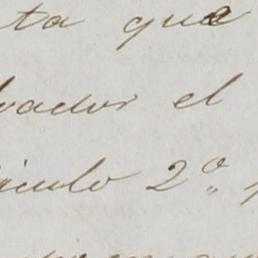 ta que
vador el
ículo 2º